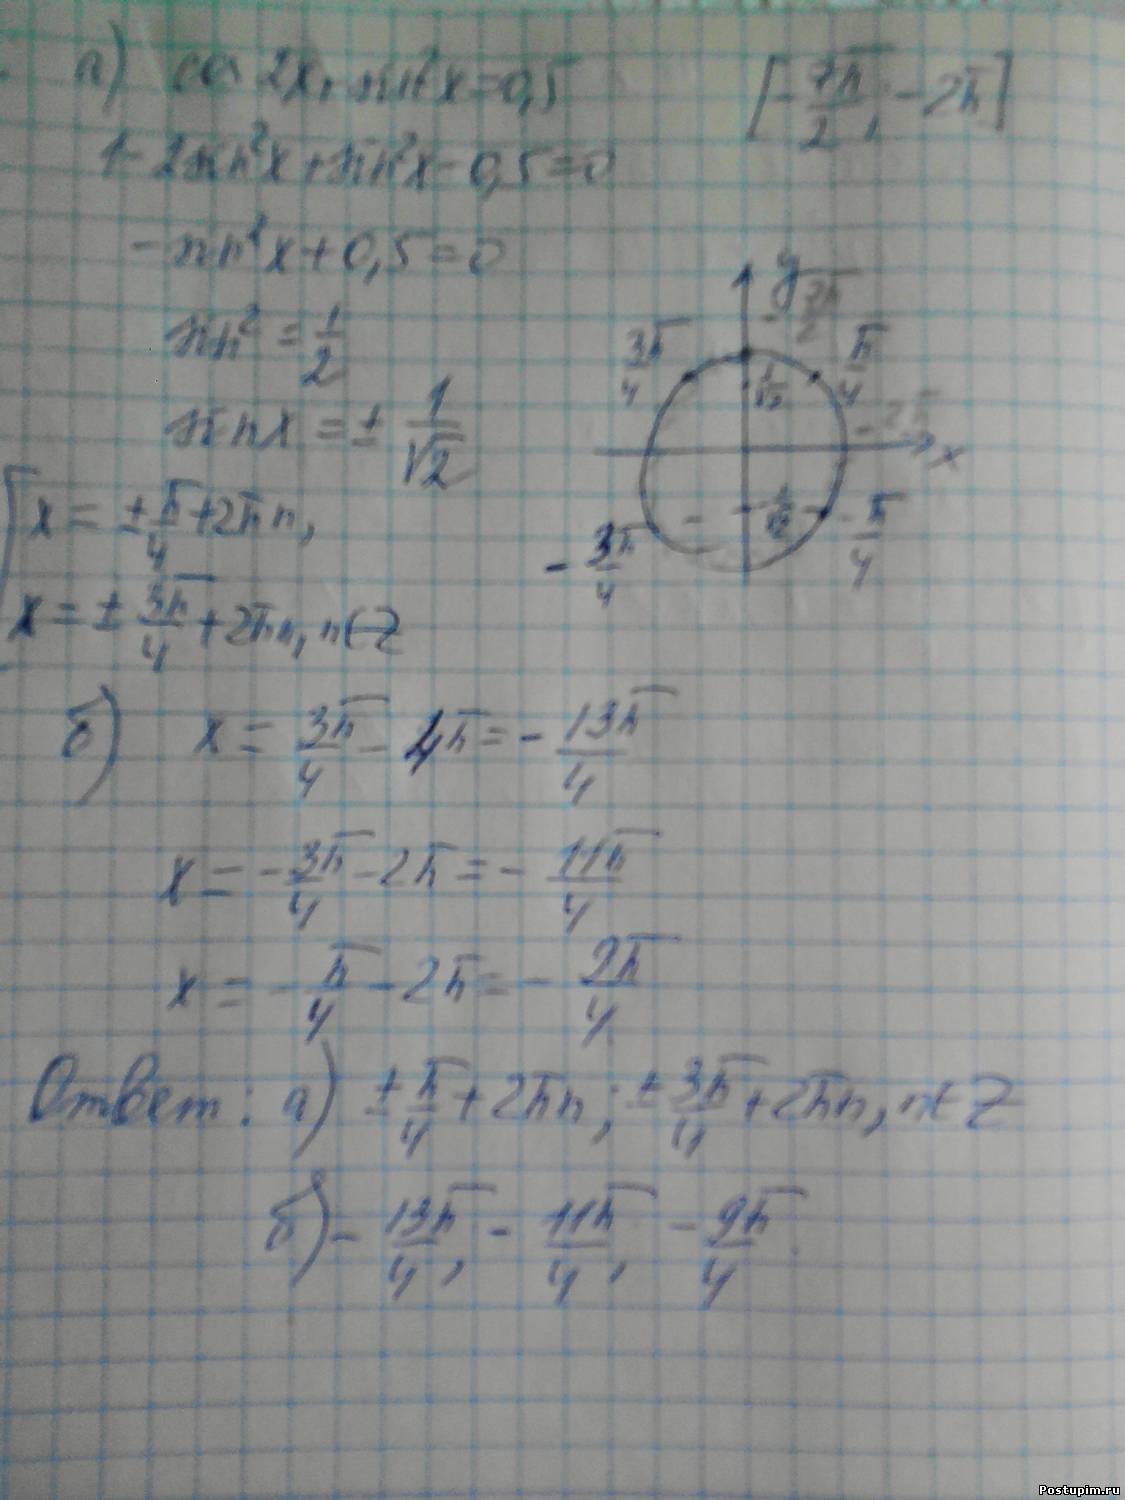 а) cos 2x + sin²x = 0,5 [-7π/2; -2π]
1 - 2sin²x + sin²x - 0,5 = 0
-sin²x + 0,5 = 0
sin² = 1/2
sin x = ± 1/√2
x = ± π/4 + 2πn,
x = ± 3π/4 + 2πn, n∈Z
y
-7π/2
3π/4 π/4
1/√2
-2π
x
-1/√2
-3π/4 -π/4
б) x = 3π/4 - 4π = - 13π/4
x = - 3π/4 - 2π = - 11π/4
x = - π/4 - 2π = - 9π/4
Ответ: а) ± π/4 + 2πn; ± 3π/4 + 2πn, n∈Z
б) - 13π/4, - 11π/4, - 9π/4.
Postupim.ru